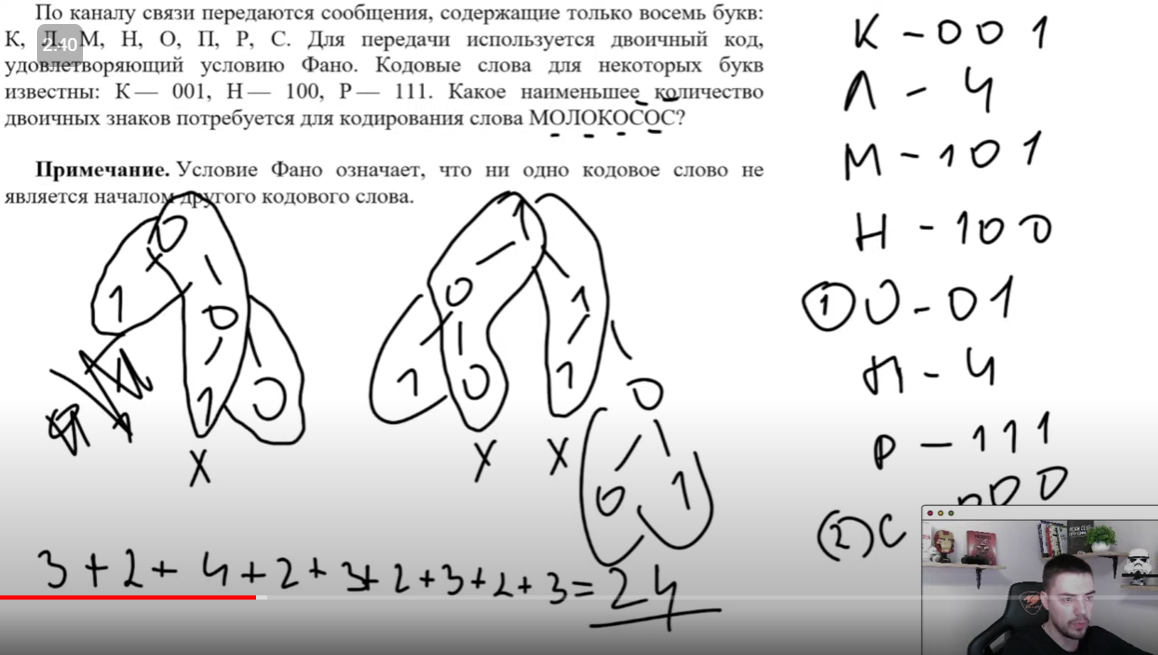 По каналу связи передаются сообщения, содержащие только восемь букв:
К, Л, М, Н, О, П, Р, С. Для передачи используется двоичный код,
2:40
удовлетворяющий условию Фано. Кодовые слова для некоторых букв
известны: К — 001, Н — 100, Р — 111. Какое наименьшее количество
двоичных знаков потребуется для кодирования слова МОЛОКОСОС?
Примечание. Условие Фано означает, что ни одно кодовое слово не
является началом другого кодового слова.
К - 001
Л - 4
М - 101
Н - 100
1 О - 01
П - 4
Р - 111
(2) С 000
0
1 0
1 0
X
1
0 1
1 0 1 0
X X
0 1
3+2+4+2+3+2+3+2+3=24